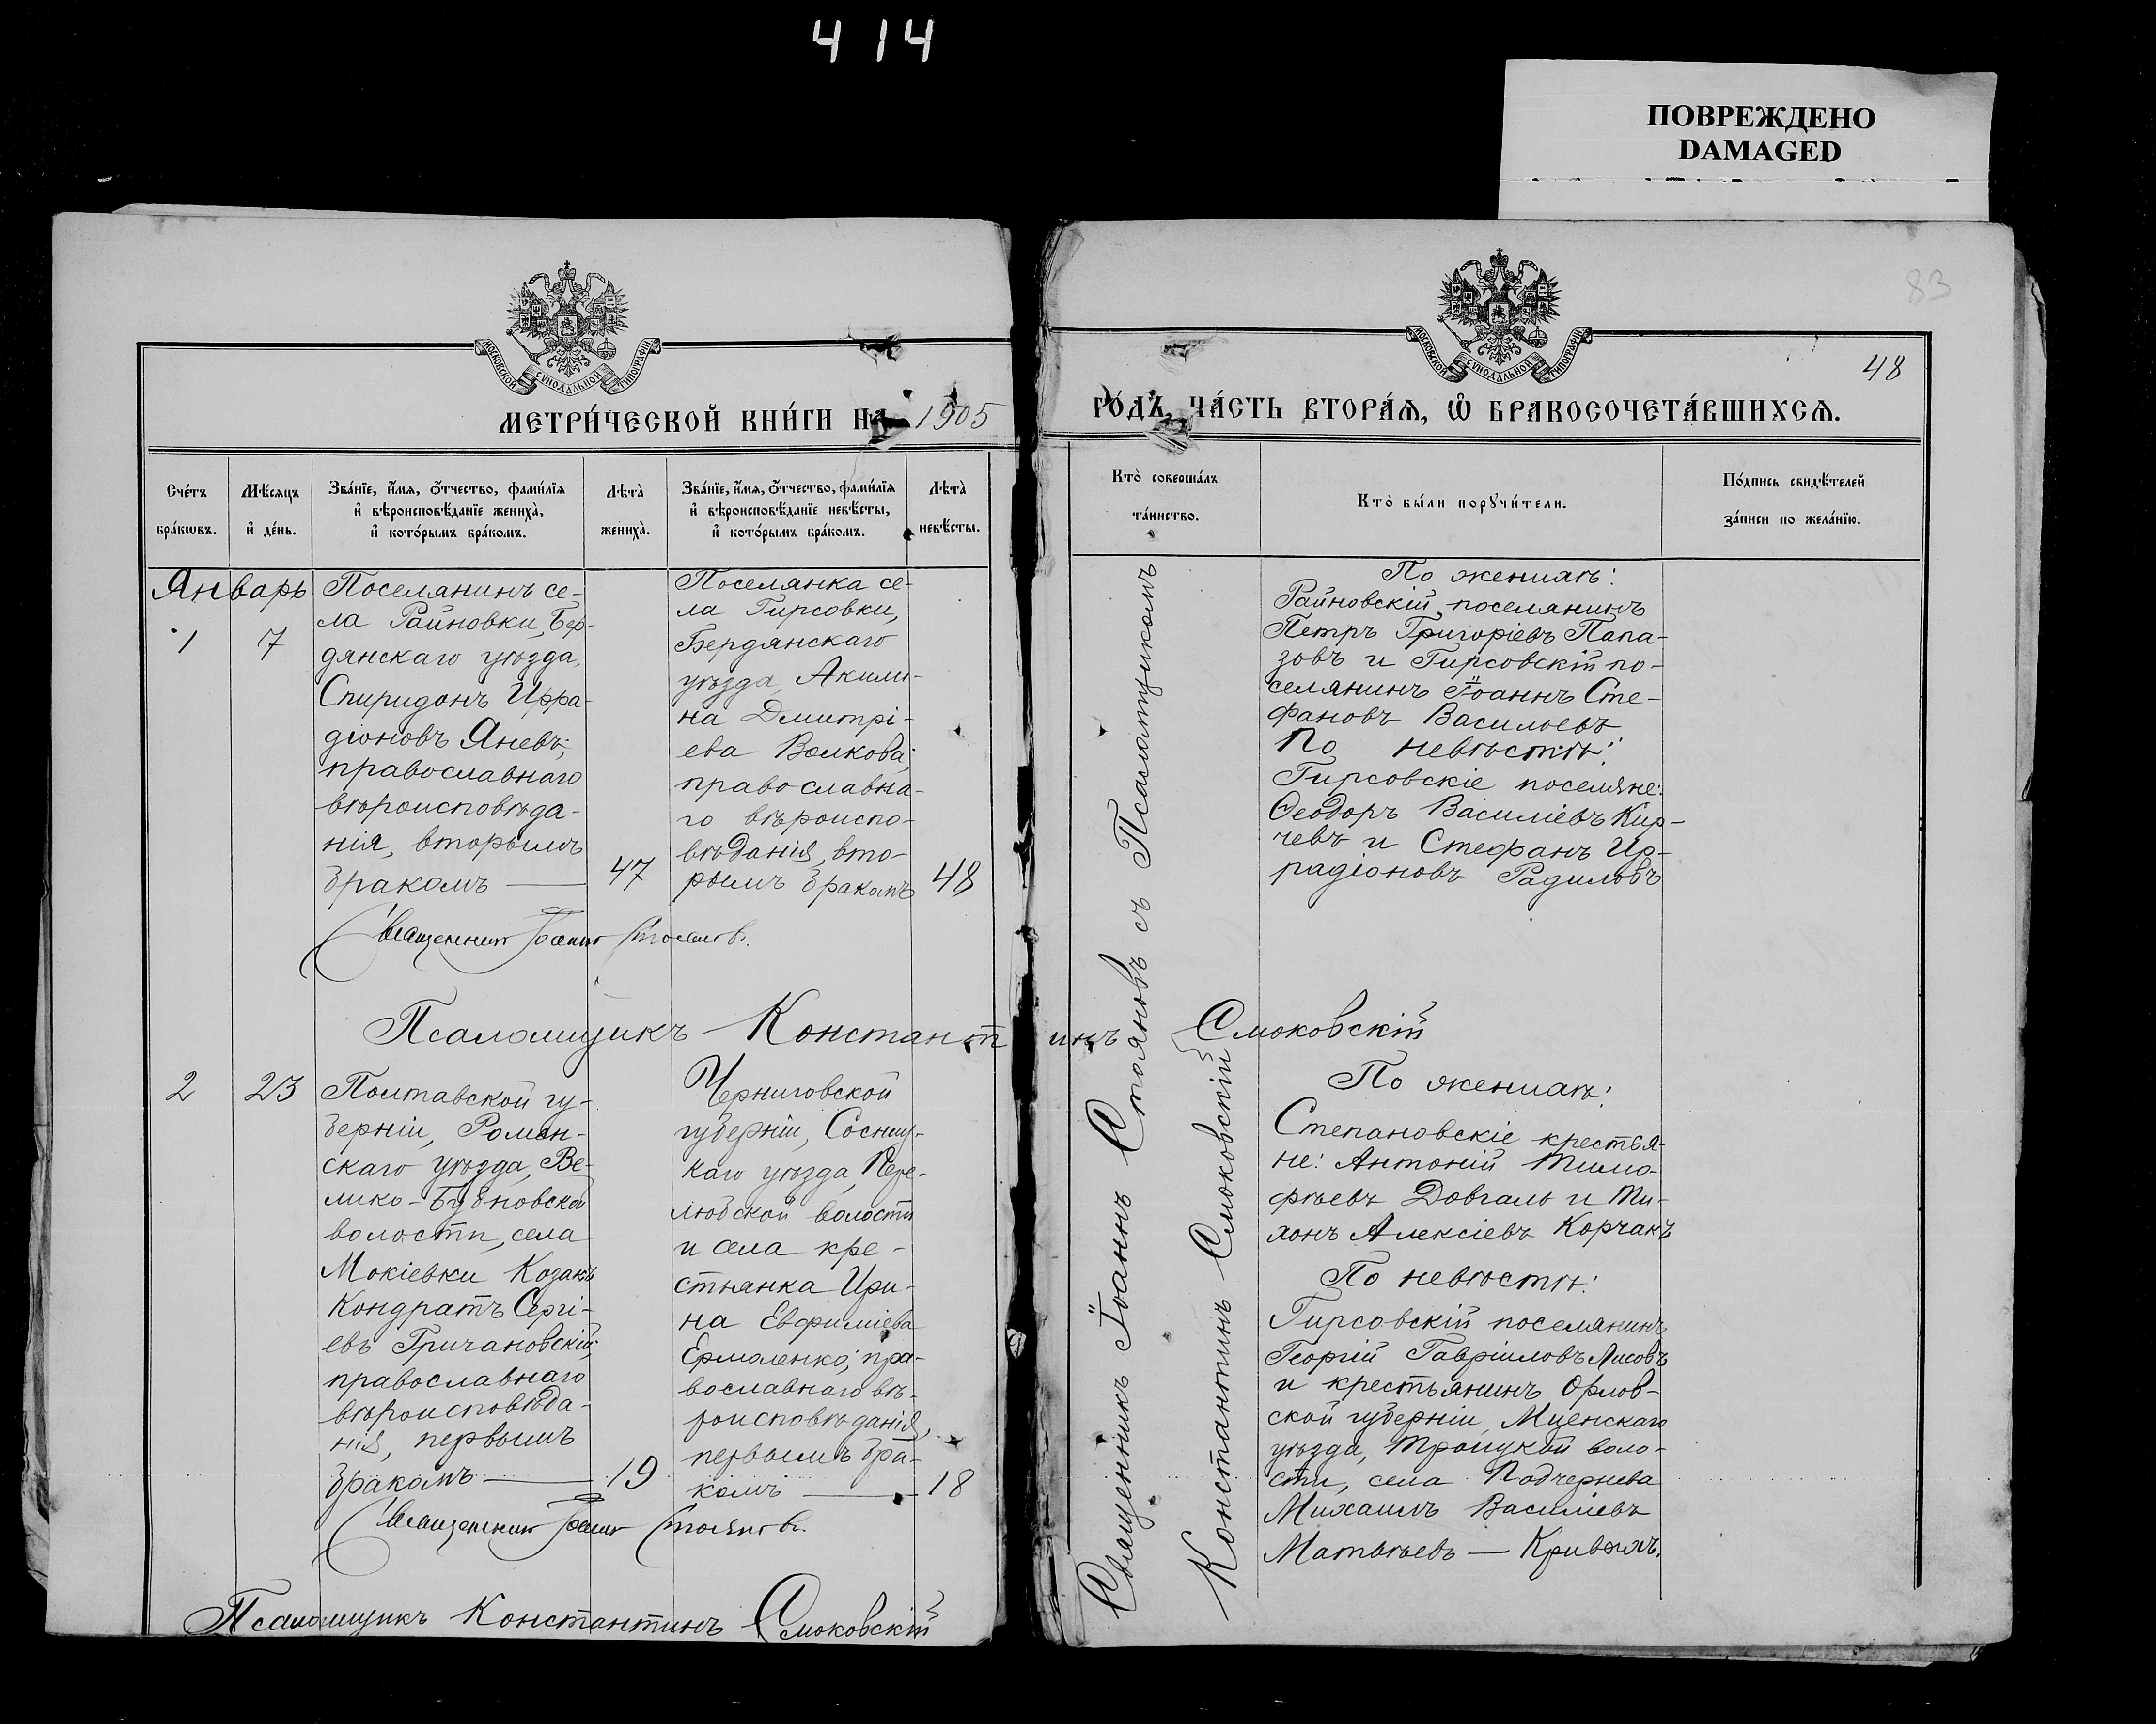 4 14
ПОВРЕЖДЕНО
DAMAGED
83
48
МОСКОВСКОЙ СѴНОДАЛЬНОЙ ТИПОГРАФІИ
МОСКОВСКОЙ СѴНОДАЛЬНОЙ ТИПОГРАФІИ
МЕТРИ́ЧЕСКОЙ КНИ́ГИ НА 1905
ГО́ДЪ, ЧА́СТЬ ВТОРА́Ѧ, Ѿ БРАКОСОЧЕТА́ВШИХСѦ.
Счетъ
браковъ.
Мѣсяцъ
и день.
Званіе, имя, отчество, фамилія
и вѣроисповѣданіе жениха,
и которымъ бракомъ.
Лѣта
жениха.
Званіе, имя, отчество, фамилія
и вѣроисповѣданіе невѣсты,
и которымъ бракомъ.
Лѣта
невѣсты.
Кто совершалъ
таинство.
Кто были поручители.
Подпись свидѣтелей
записи по желанію.
Январь
1
7
Поселянинъ се-
ла Райновки, Бер-
дянскаго уѣзда,
Спиридонъ Ирра-
діоновъ Яневъ;
православнаго
вѣроисповѣда-
нія, вторымъ
бракомъ —
47
Поселянка се-
ла Гирсовки,
Бердянскаго
уѣзда, Акили-
на Дмитрі-
ева Волкова;
православна-
го вѣроиспо-
вѣданія, вто-
рымъ бракомъ
48
По женихѣ:
Райновскій поселянинъ
Петръ Григоріевъ Папа-
зовъ и Гирсовскій по-
селянинъ Іоаннъ Сте-
фановъ Васильевъ
По невѣстѣ:
Гирсовскіе поселяне:
Ѳеодоръ Василіевъ Кир-
чевъ и Стефанъ Ир-
радіоновъ Радиловъ
Священникъ Іоаннъ Стояновъ.
Псаломщикъ Константинъ Смоковскій
2
23
Полтавской гу-
берніи, Ромен-
скаго уѣзда, Ве-
лико-Бубновской
волости, села
Мокіевки Козакъ
Кондратъ Сергі-
евъ Гричановскій;
православнаго
вѣроисповѣда-
нія, первымъ
бракомъ —
19
Черниговской
губерніи, Сосниц-
каго уѣзда, Пере-
любской волости
и села кре-
стьянка Ири-
на Евфиміева
Ермоленко; пра-
вославнаго вѣ-
роисповѣданія,
первымъ бра-
комъ —
18
По женихѣ:
Степановскіе крестья-
не: Антоній Тимо-
фѣевъ Довгаль и Ти-
хонъ Алексіевъ Корчакъ
По невѣстѣ:
Гирсовскій поселянинъ
Георгій Гавріиловъ Лисовъ
и крестьянинъ Орлов-
ской губерніи, Мценскаго
уѣзда, Троицкой воло-
сти, села Подчернева
Михаилъ Василіевъ
Матвѣевъ —
Священникъ Іоаннъ Стояновъ.
Псаломщикъ Константинъ Смоковскій
Священникъ Іоаннъ Стояновъ съ Псаломщикомъ
Константинъ Смоковскій